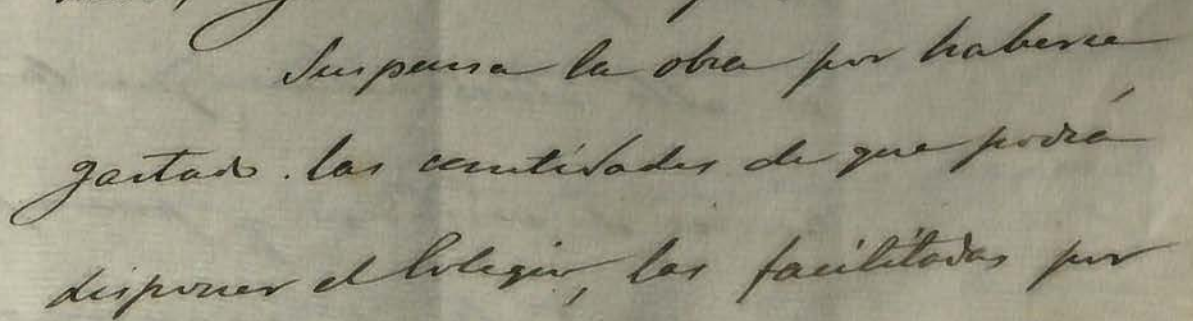 Suspensa la obra por haberse
gastado las cantidades de que podrá
disponer el Colegio, las facilitadas por